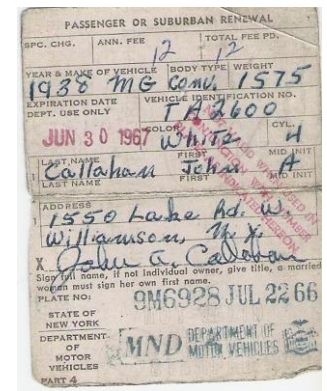 PASSENGER OR SUBURBAN RENEWAL
SPC. CHG. ANN. FEE TOTAL FEE PD.
12 12
YEAR & MAKE OF VEHICLE BODY TYPE WEIGHT
1938 MG Conv. 1575
EXPIRATION DATE VEHICLE IDENTIFICATION NO.
DEPT. USE ONLY TA2600
JUN 30 1967 COLOR White CYL. 4
LAST NAME FIRST MID INIT
1 Callahan John A
LAST NAME FIRST MID INIT
ADDRESS
1550 Lake Rd. W.
Williamson, N.Y.
X John A. Callahan
Sign full name, if not individual owner, give title, a married
woman must sign her own first name.
PLATE NO: 9M6928 JUL 22 66
STATE OF
NEW YORK
DEPARTMENT
OF
MOTOR
VEHICLES
MND DEPARTMENT OF
MOTOR VEHICLES
PART 4